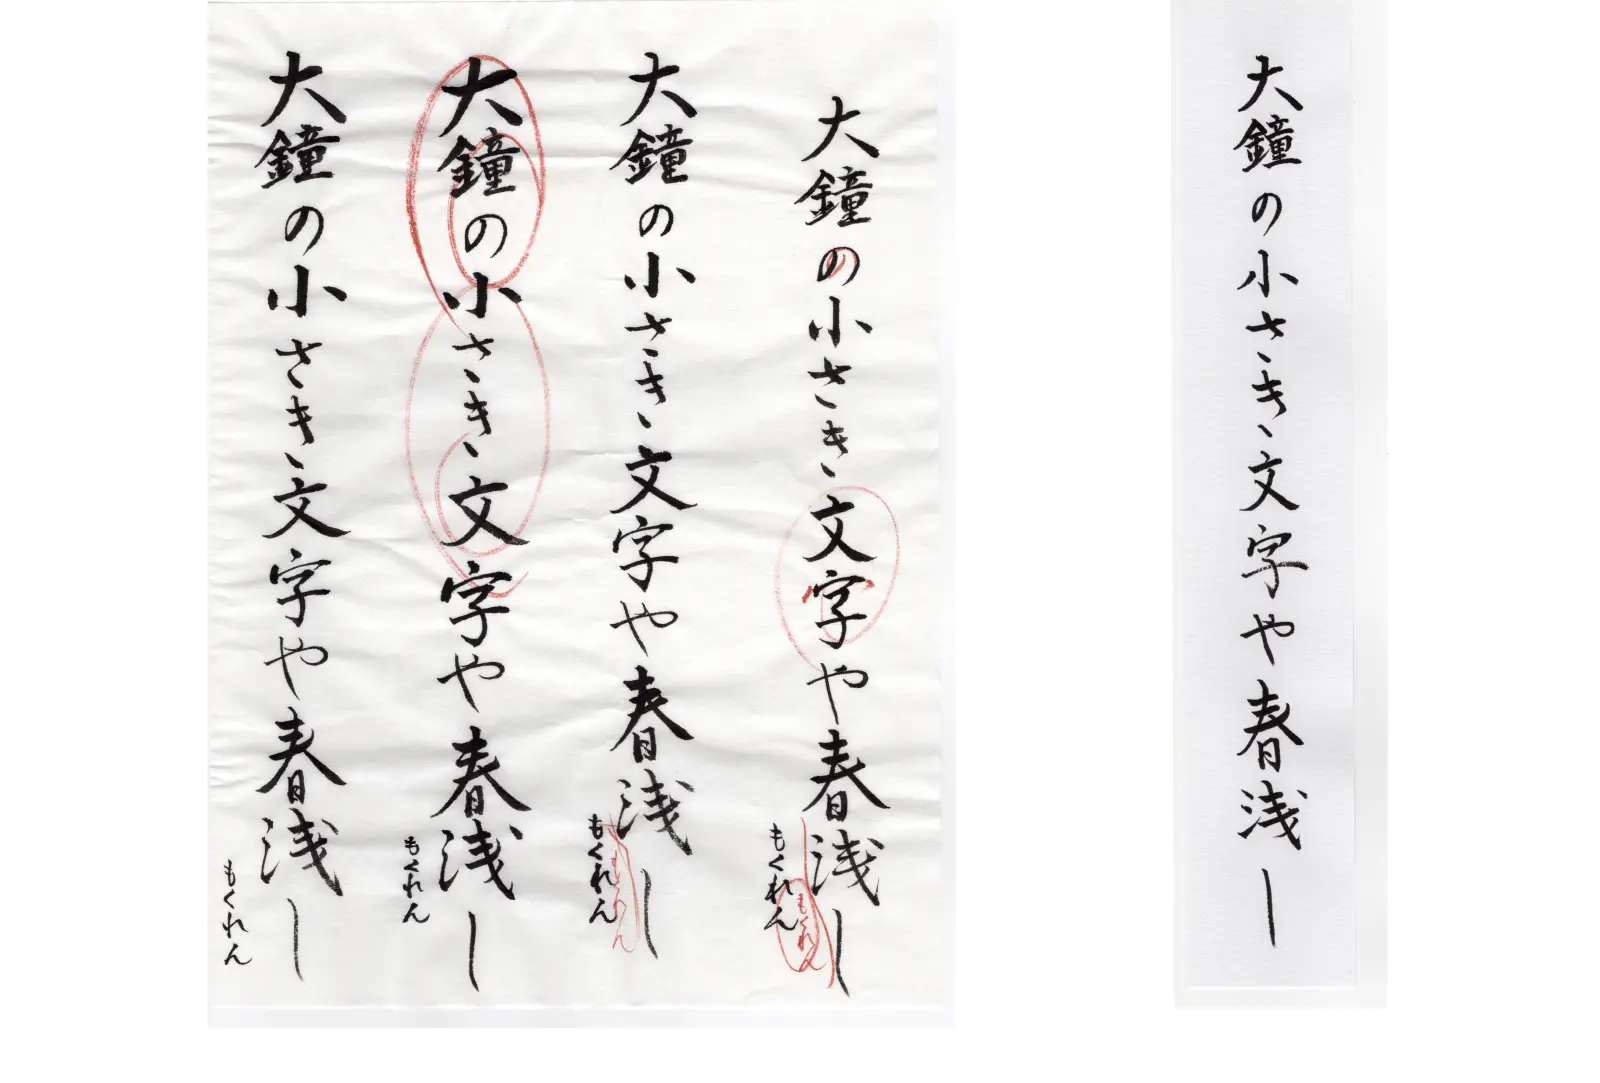 大鐘の小さきき文字や春浅し
大鐘の小さき文字や春浅し
もくれん
もくれん
大鐘の小さき文字や春浅し
もくれん
もくれん
大鐘の小さき文字や春浅し
もくれん
大鐘の小さき文字や春浅し
もくれん